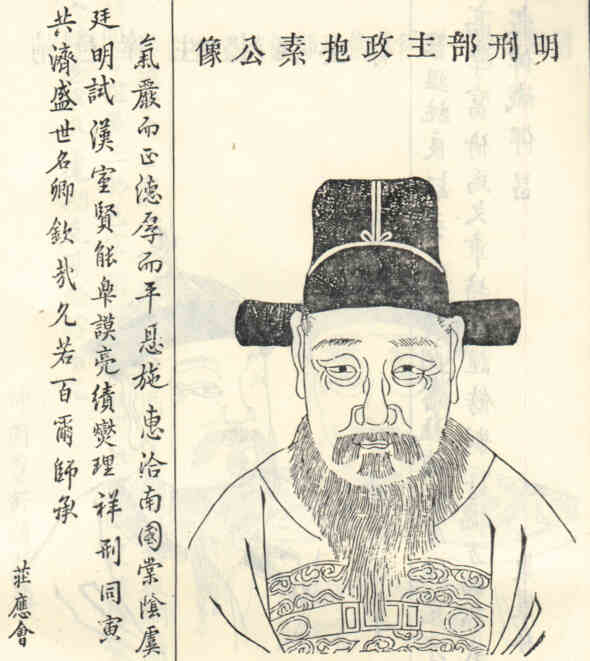 明刑部主政抱素公像
氣嚴而正德孚而平恩施惠洽南國棠陰虞
廷明試漢室賢能皋謨亮績燮理祥刑同寅
共濟盛世名卿欽哉允若百爾師承
莊應會